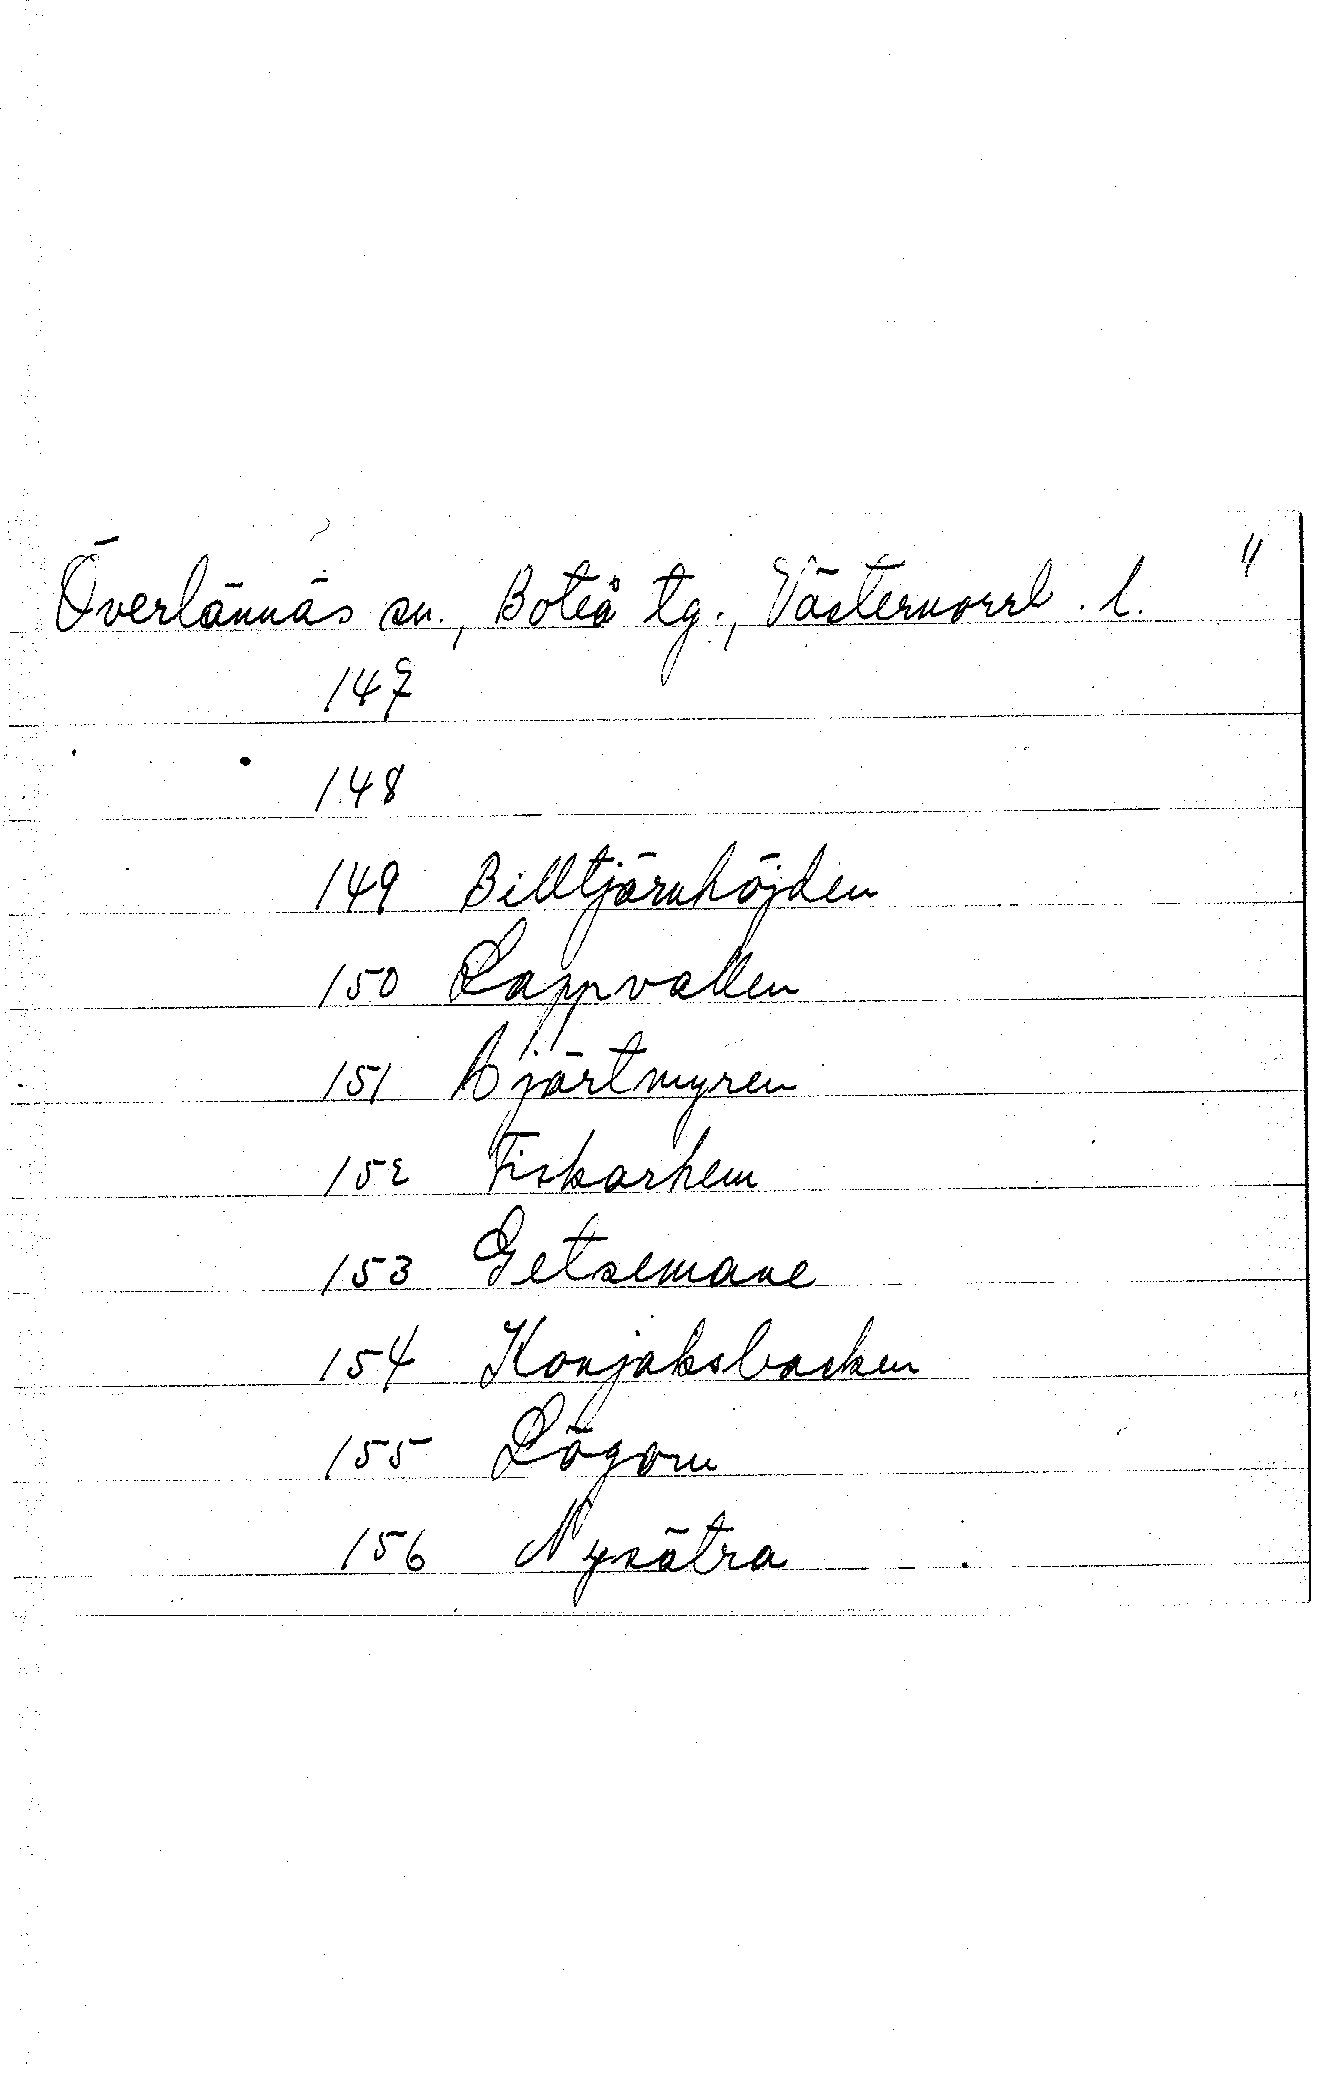 Överlännäs sn., Boteå tg., Västernorrl. l. 11
147
148
149 Billtjärnhöjden
150 Lappvallen
151 Hjärtmyren
152 Fiskarhem
153 Getsemane
154 Konjaksbacken
155 Lögom
156 Nysätra